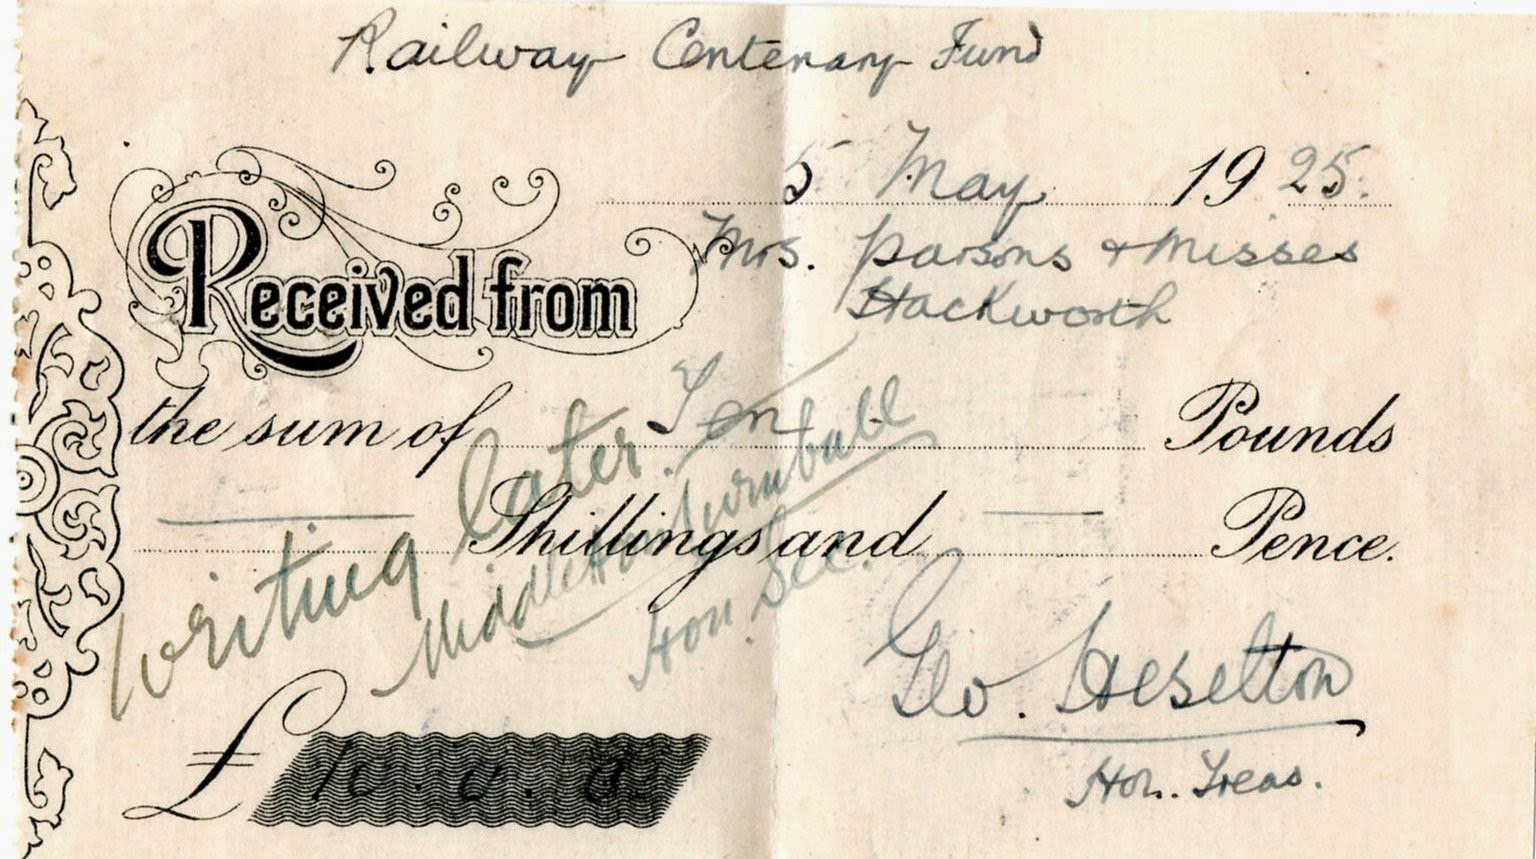 Railway Centenary Fund
5 May 1925.
Received from Mrs. Parsons & Misses
Hackworth
the sum of Ten Pounds
Shillings and Pence.
Writing later.
Middleton Turnbull
Hon. Sec.
Geo. Heselton
Hon. Treas.
£10.0.0